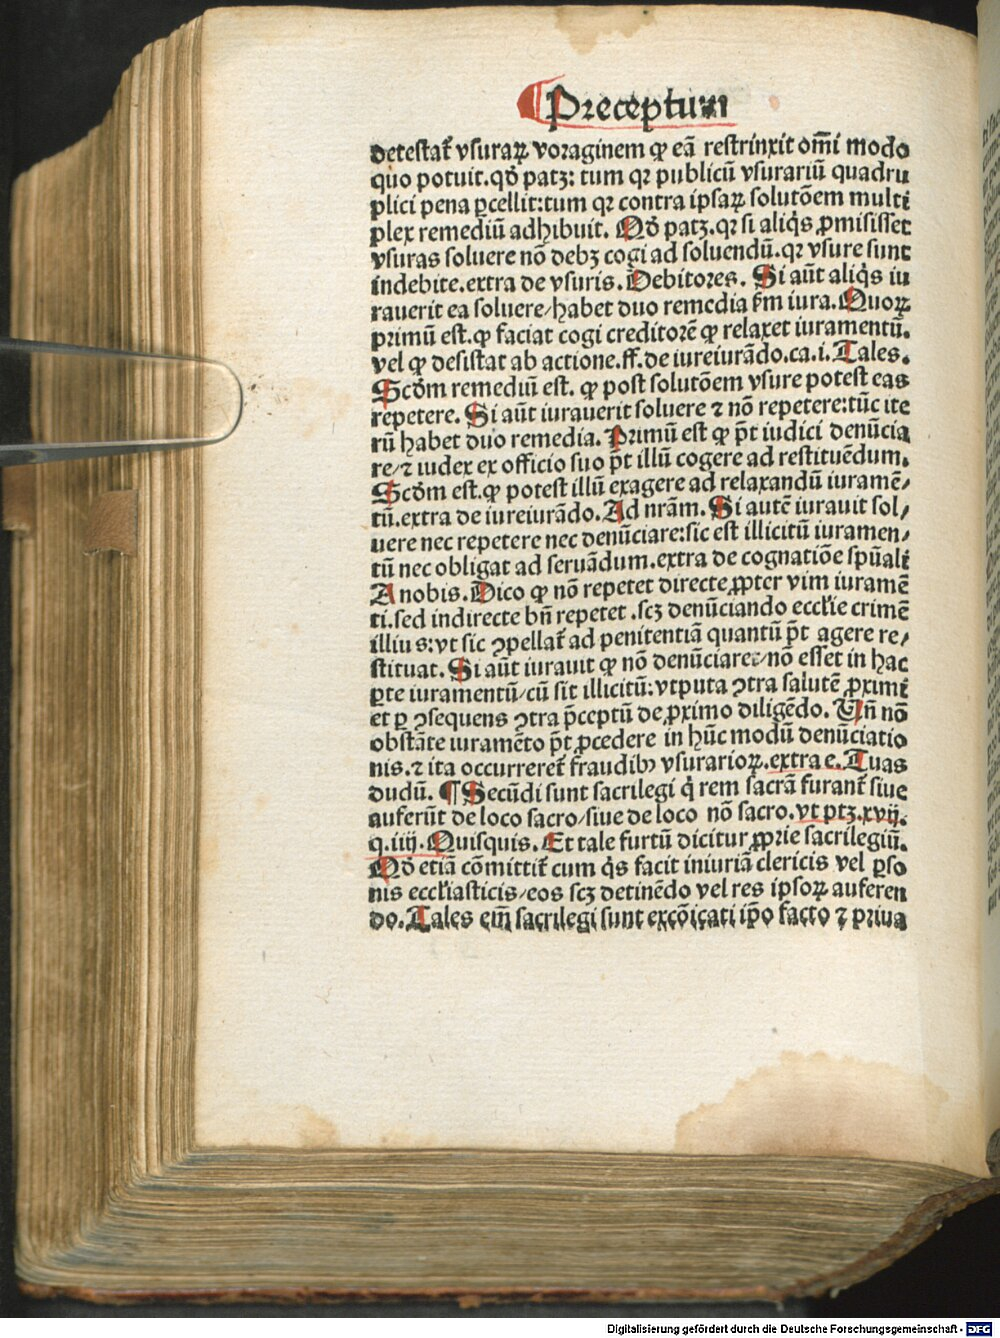 Preceptum
detestat᷑ vsuraꝝ voraginem ꝙ eā restrinxit om̄i modo
quo potuit.qđ patꝫ: tum qꝛ publicū vsurariū quadru
plici pena ꝑcellit:tum qꝛ contra ipsaꝝ solutōem multi
plex remediū adhibuit. Qđ patꝫ.qꝛ si aliq̇s ꝓmisisset
vsuras soluere nō debꝫ cogi ad soluendū.qꝛ vsure sunt
indebite.extra de vsuris. Debitores. Si aūt aliq̇s iu
rauerit ea soluere/habet duo remedia ẜm iura. Quoꝝ
primū est.ꝙ faciat cogi creditorē ꝙ relaxet iuramentū.
vel ꝙ desistat ab actione.ff.de iureiurādo.ca.i. Tales.
Scđm remediū est. ꝙ post solutōem vsure potest eas
repetere. Si aūt iurauerit soluere ⁊ nō repetere:tūc ite
rū habet duo remedia. Primū est ꝙ p̄t iudici denūcia
re/⁊ iudex ex officio suo p̄t illū cogere ad restituēdum.
Scđm est.ꝙ potest illū exagere ad relaxandū iuramē/
tū.extra de iureiurādo. Ad nr̄am. Si autē iurauit sol/
uere nec repetere nec denūciare:sic est illicitū iuramen/
tū nec obligat ad seruādum.extra de cognatiōe spūali
A nobis. Dico ꝙ nō repetet directe ꝓpter vim iuramē
ti.sed indirecte bn̄ repetet .scꝫ denūciando eccl'ie crimē
illius:vt sic ꝯpellat᷑ ad penitentiā quantū p̄t agere re/
stituat. Si aūt iurauit ꝙ nō denūciaret/nō esset in hac
ꝑte iuramentū/cū sit illicitū:vtputa ꝯtra salutē ꝓximi
et ꝑ ꝯsequens ꝯtra p̄ceptū de ꝓximo diligēdo. Vn̄ nō
obstāte iuramēto p̄t ꝓcedere in hūc modū denūciatio
nis.⁊ ita occurreret᷑ fraudibꝰ vsurarioꝝ.extra e. Tuas
dudū. ¶ Secūdi sunt sacrilegi q̇ rem sacrā furant᷑ siue
auferūt de loco sacro/siue de loco nō sacro.vt ptꝫ.xvij.
q.iiij. Quisquis. Et tale furtū dicitur ꝓprie sacrilegiū.
Qđ etiā cōmittit᷑ cum q̇s facit iniuriā clericis vel ꝑso
nis eccl'iasticis/eos scꝫ detinēdo vel res ipsoꝝ auferen
do. Tales eīm sacrilegi sunt excōicati ip̄o facto ⁊ priua
Digitalisierung gefördert durch die Deutsche Forschungsgemeinschaft - DFG